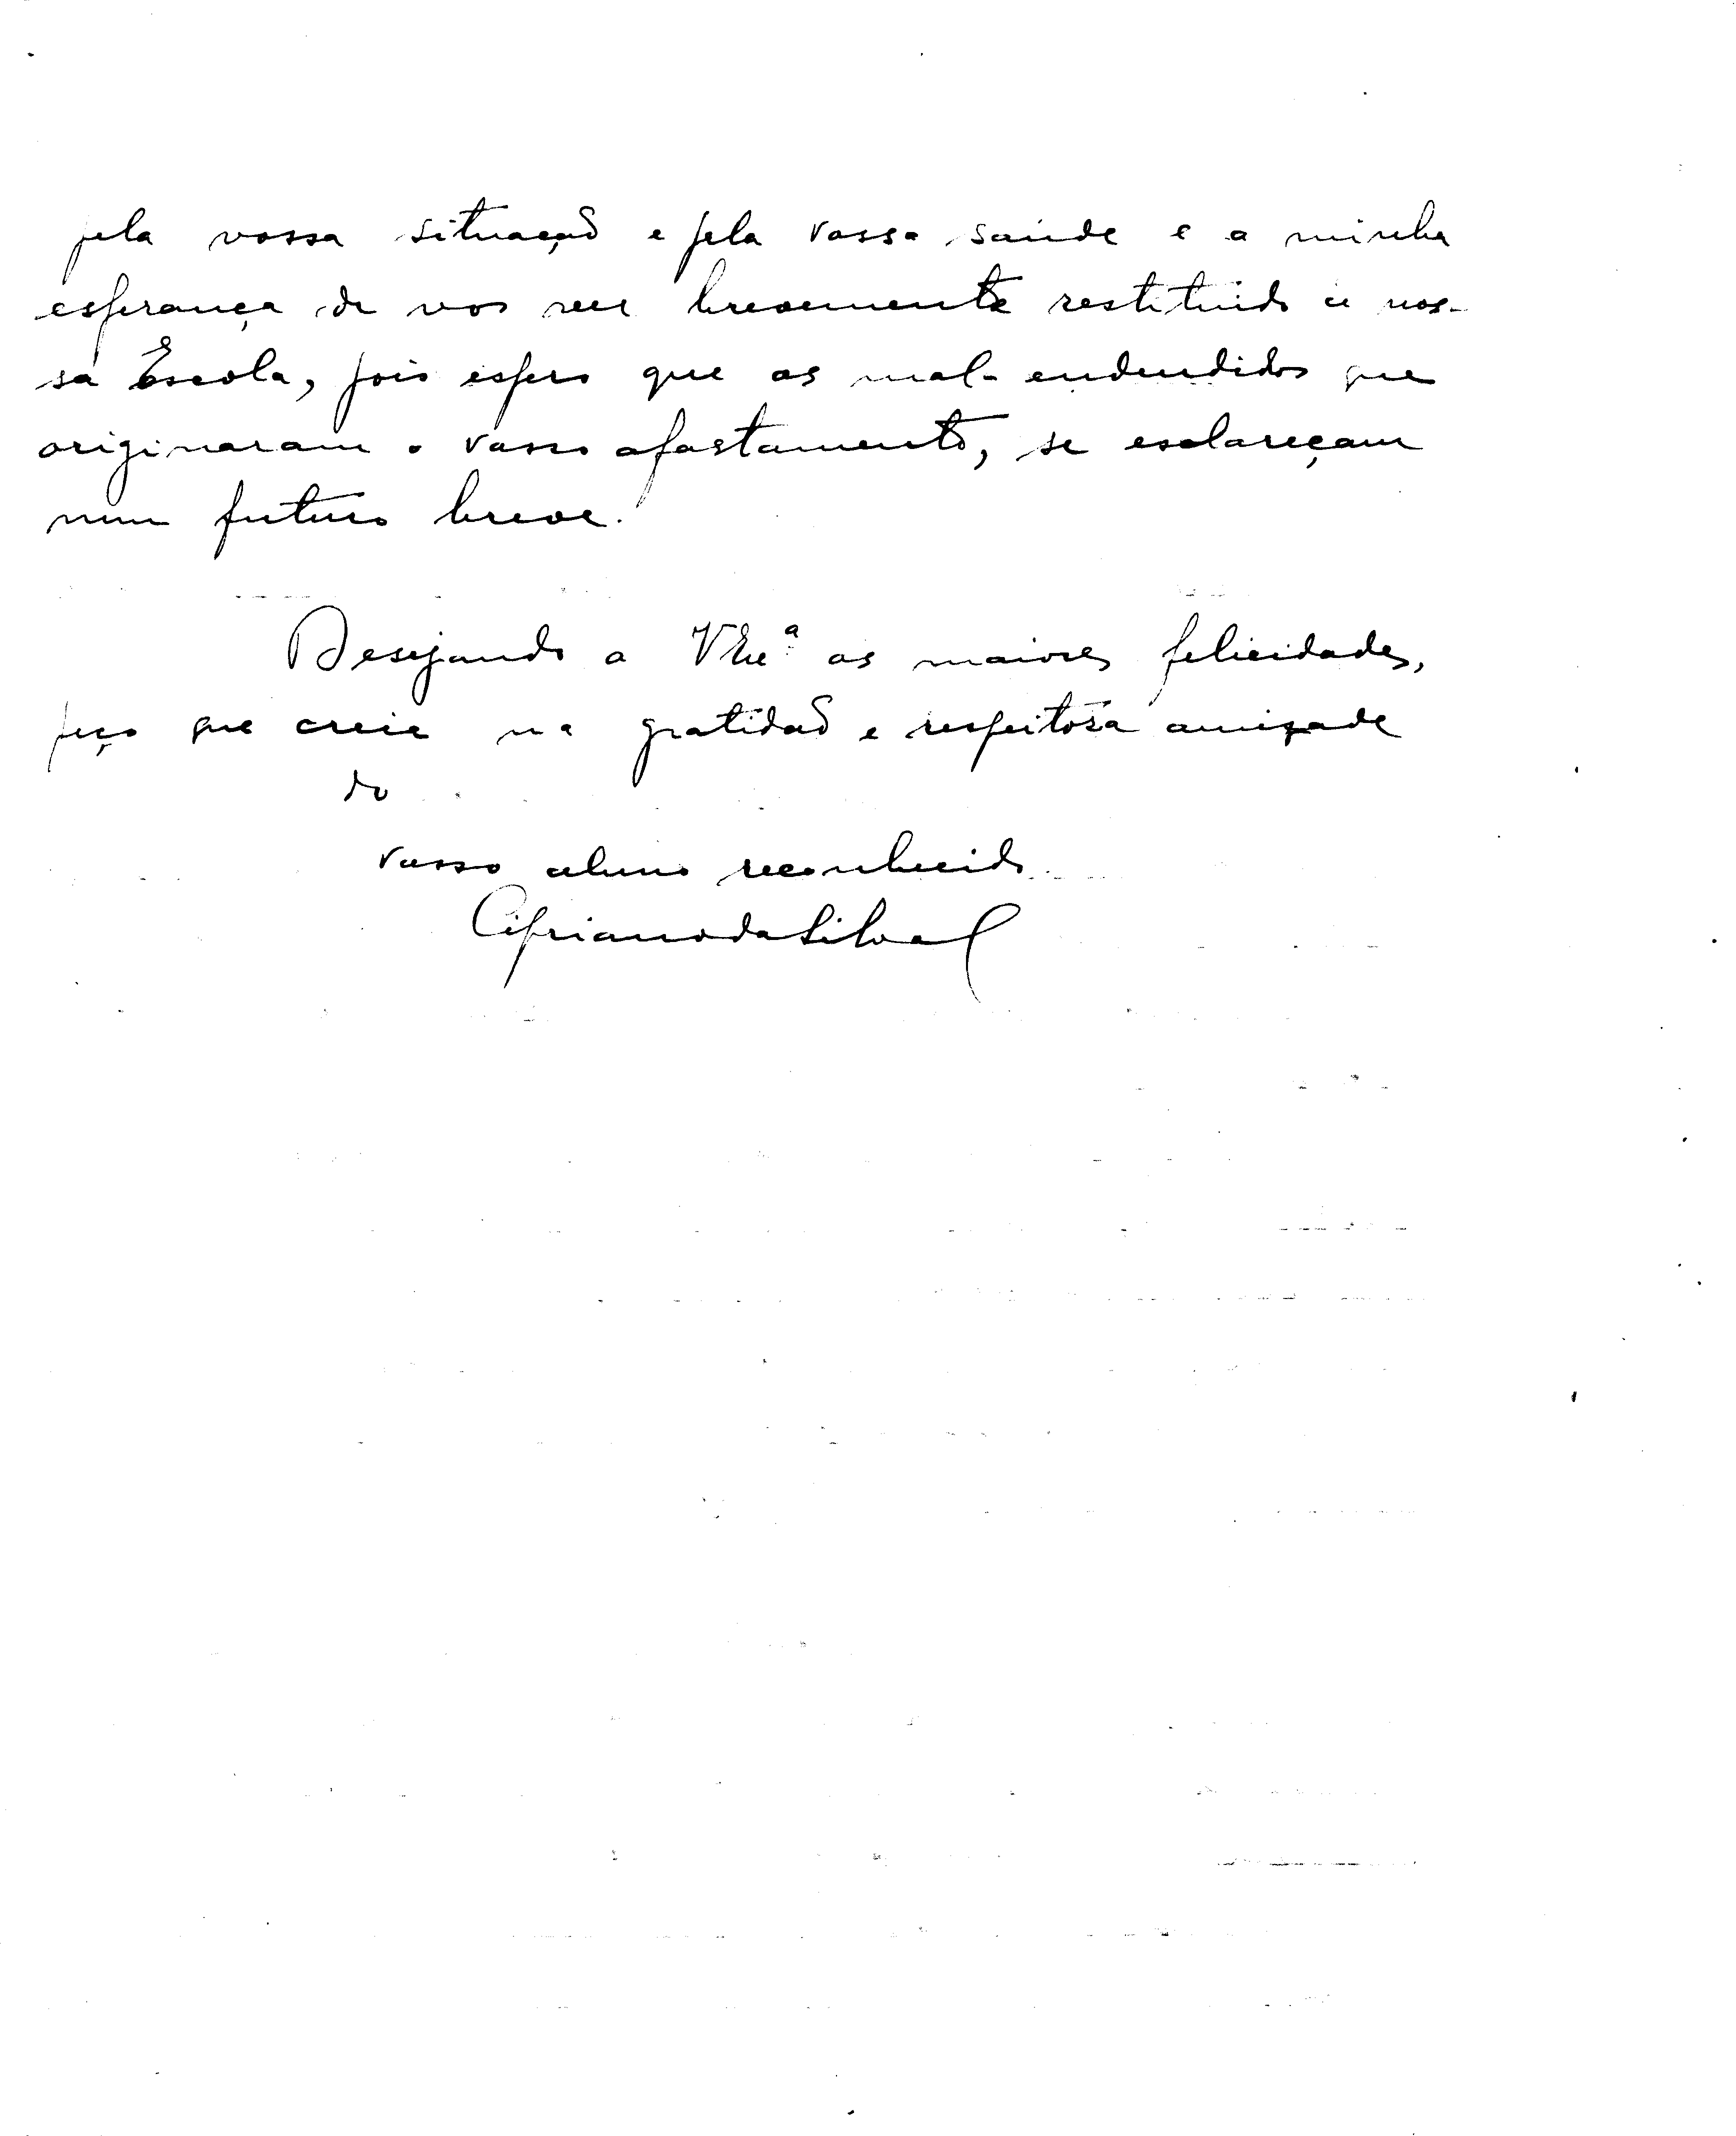 pela vossa situação e pela vossa saúde e a minha
esperança de vos ver brevemente restituido à nos-
sa Escola, pois espero que os mal-endendidos que
originaram o vosso afastamento, se esclareçam
num futuro breve.
Desejando a VExª as maiores felicidades,
peço que creia na gratidão e respeitosa amizade
do
vosso aluno reconhecido
Cipriano da Silva